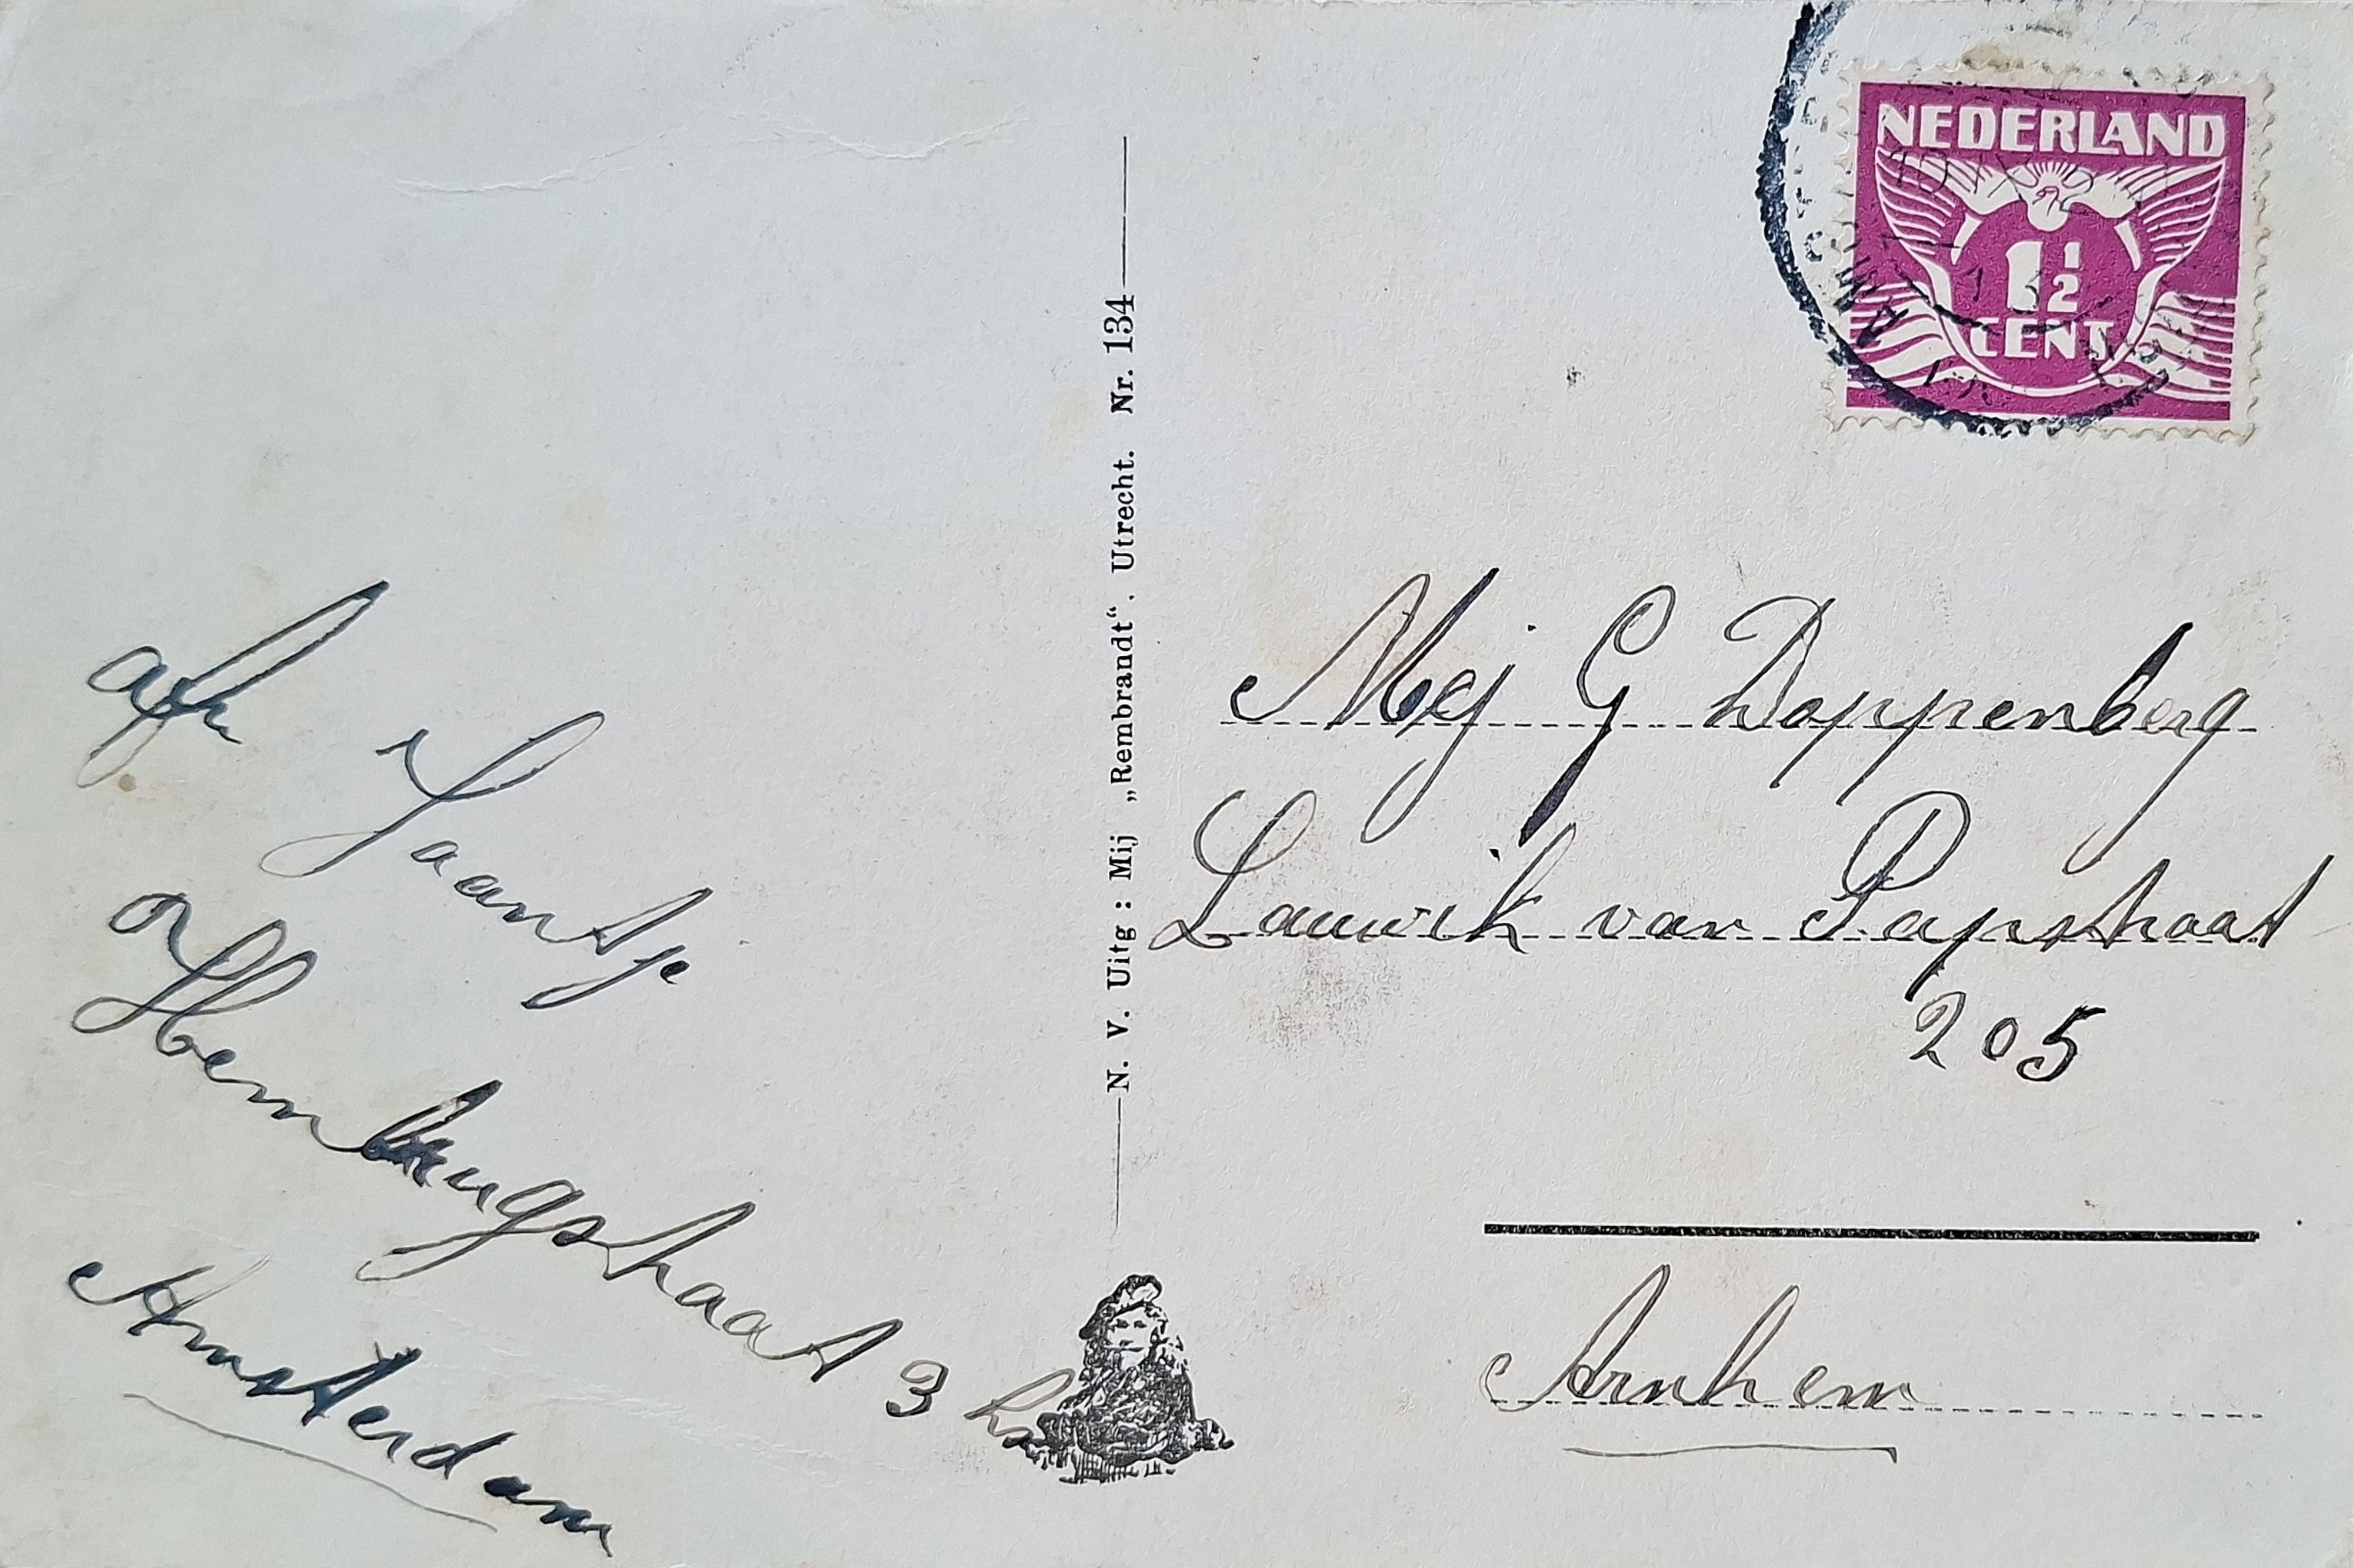 afz Jaantje
Hemburgstraat 3 hs
Amsterdam
N. V. Uitg : Mij „Rembrandt“. Utrecht. Nr. 134
NEDERLAND
1½
CENT
Mej G Doppenberg
Lauwik van Papstraat
205
Arnhem